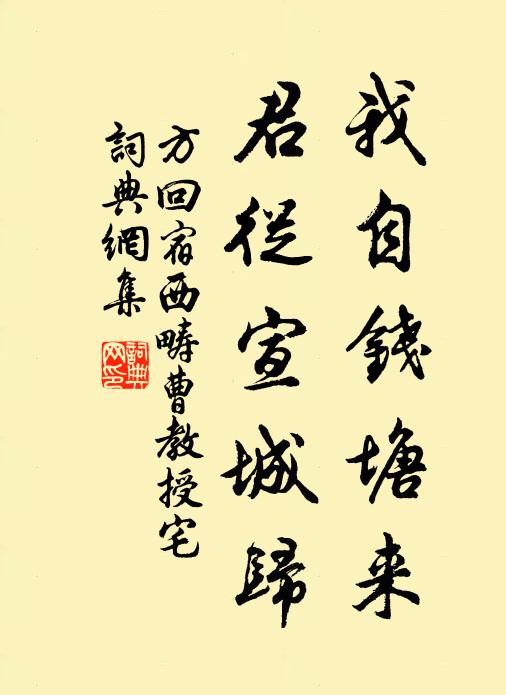 我自錢塘来
君從宣城歸
方回宿西疇曹教授宅
詞典網集
詞典网印